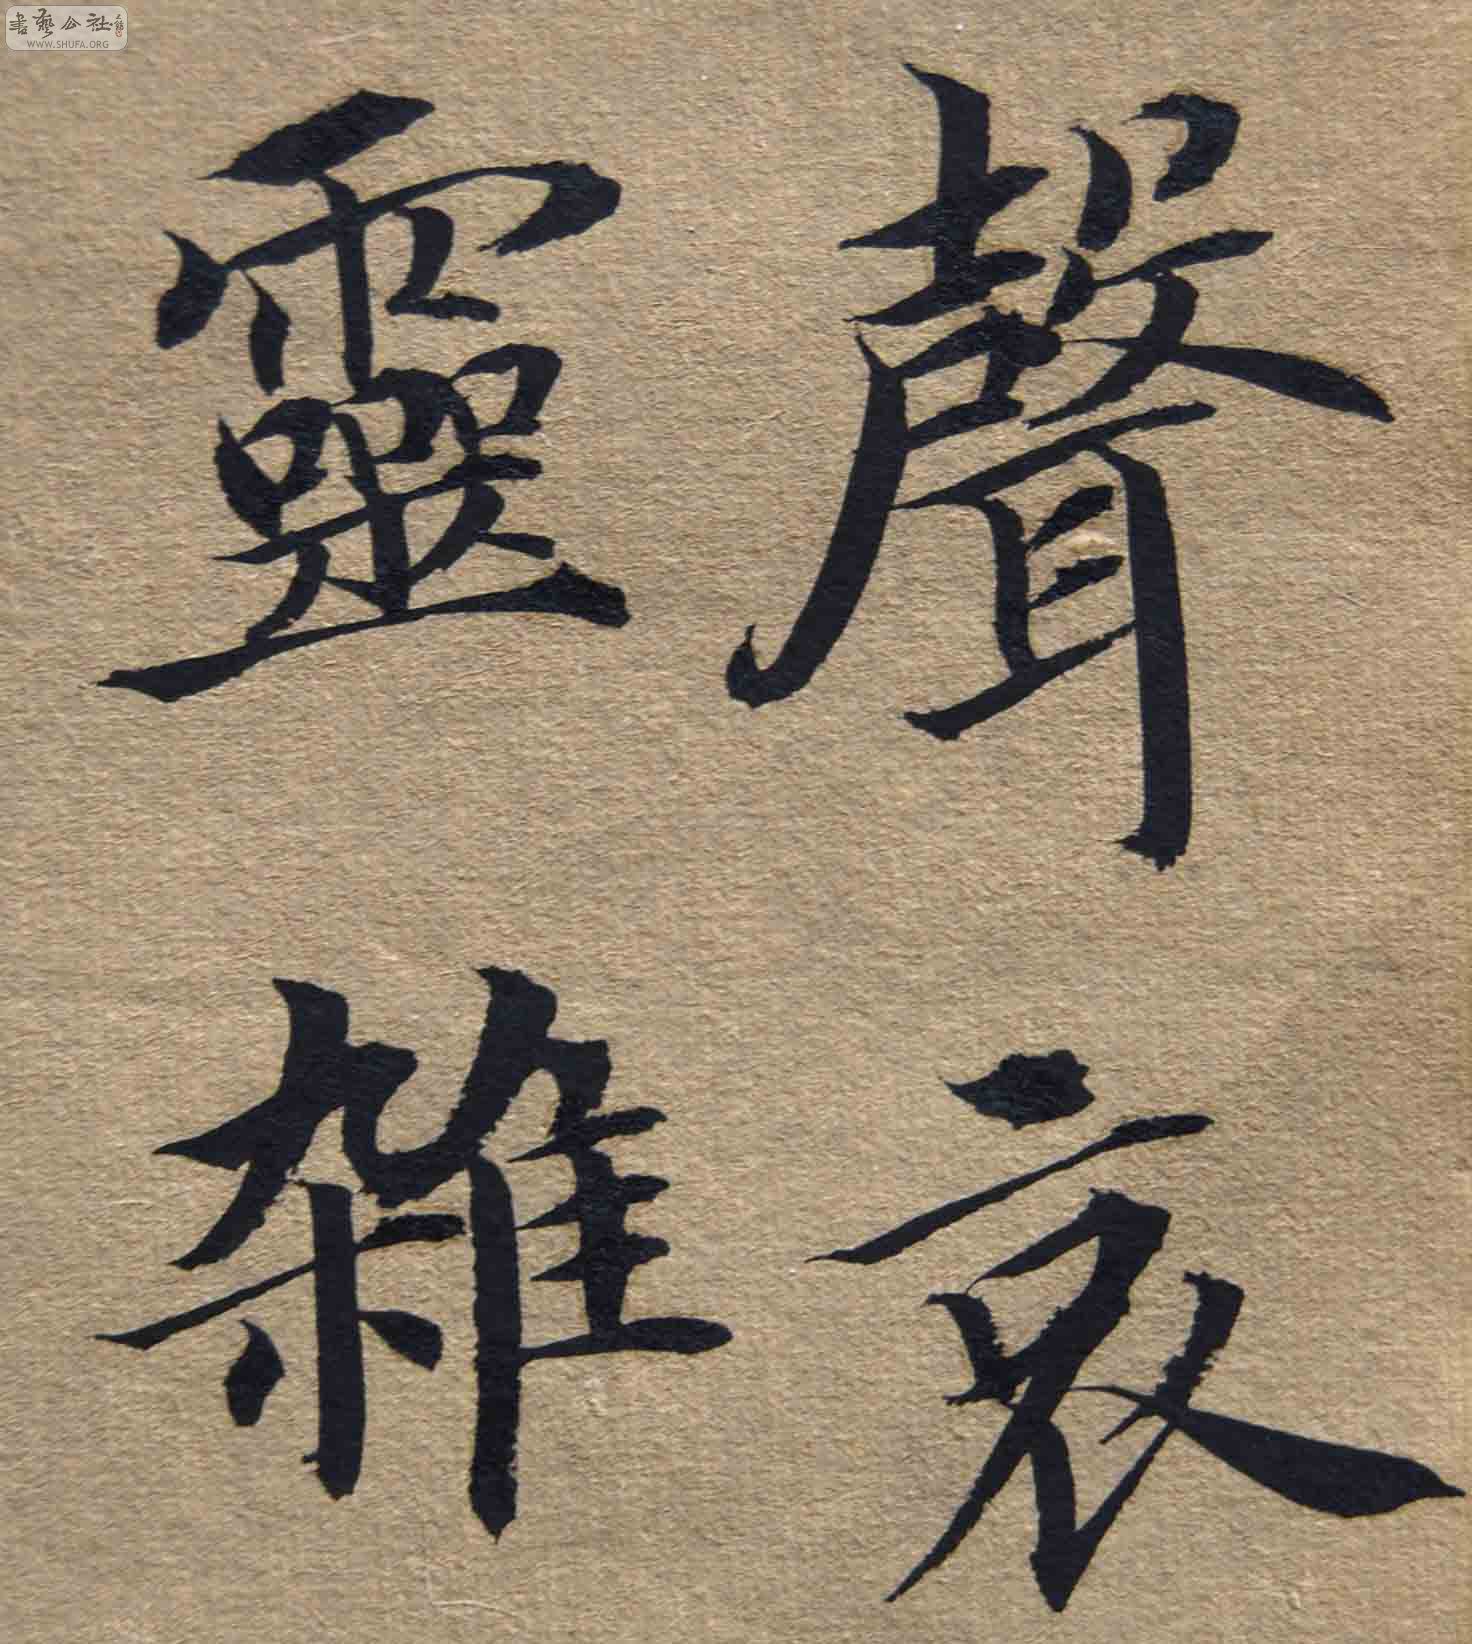 書藝公社
WWW.SHUFA.ORG
聲哀
靈雜